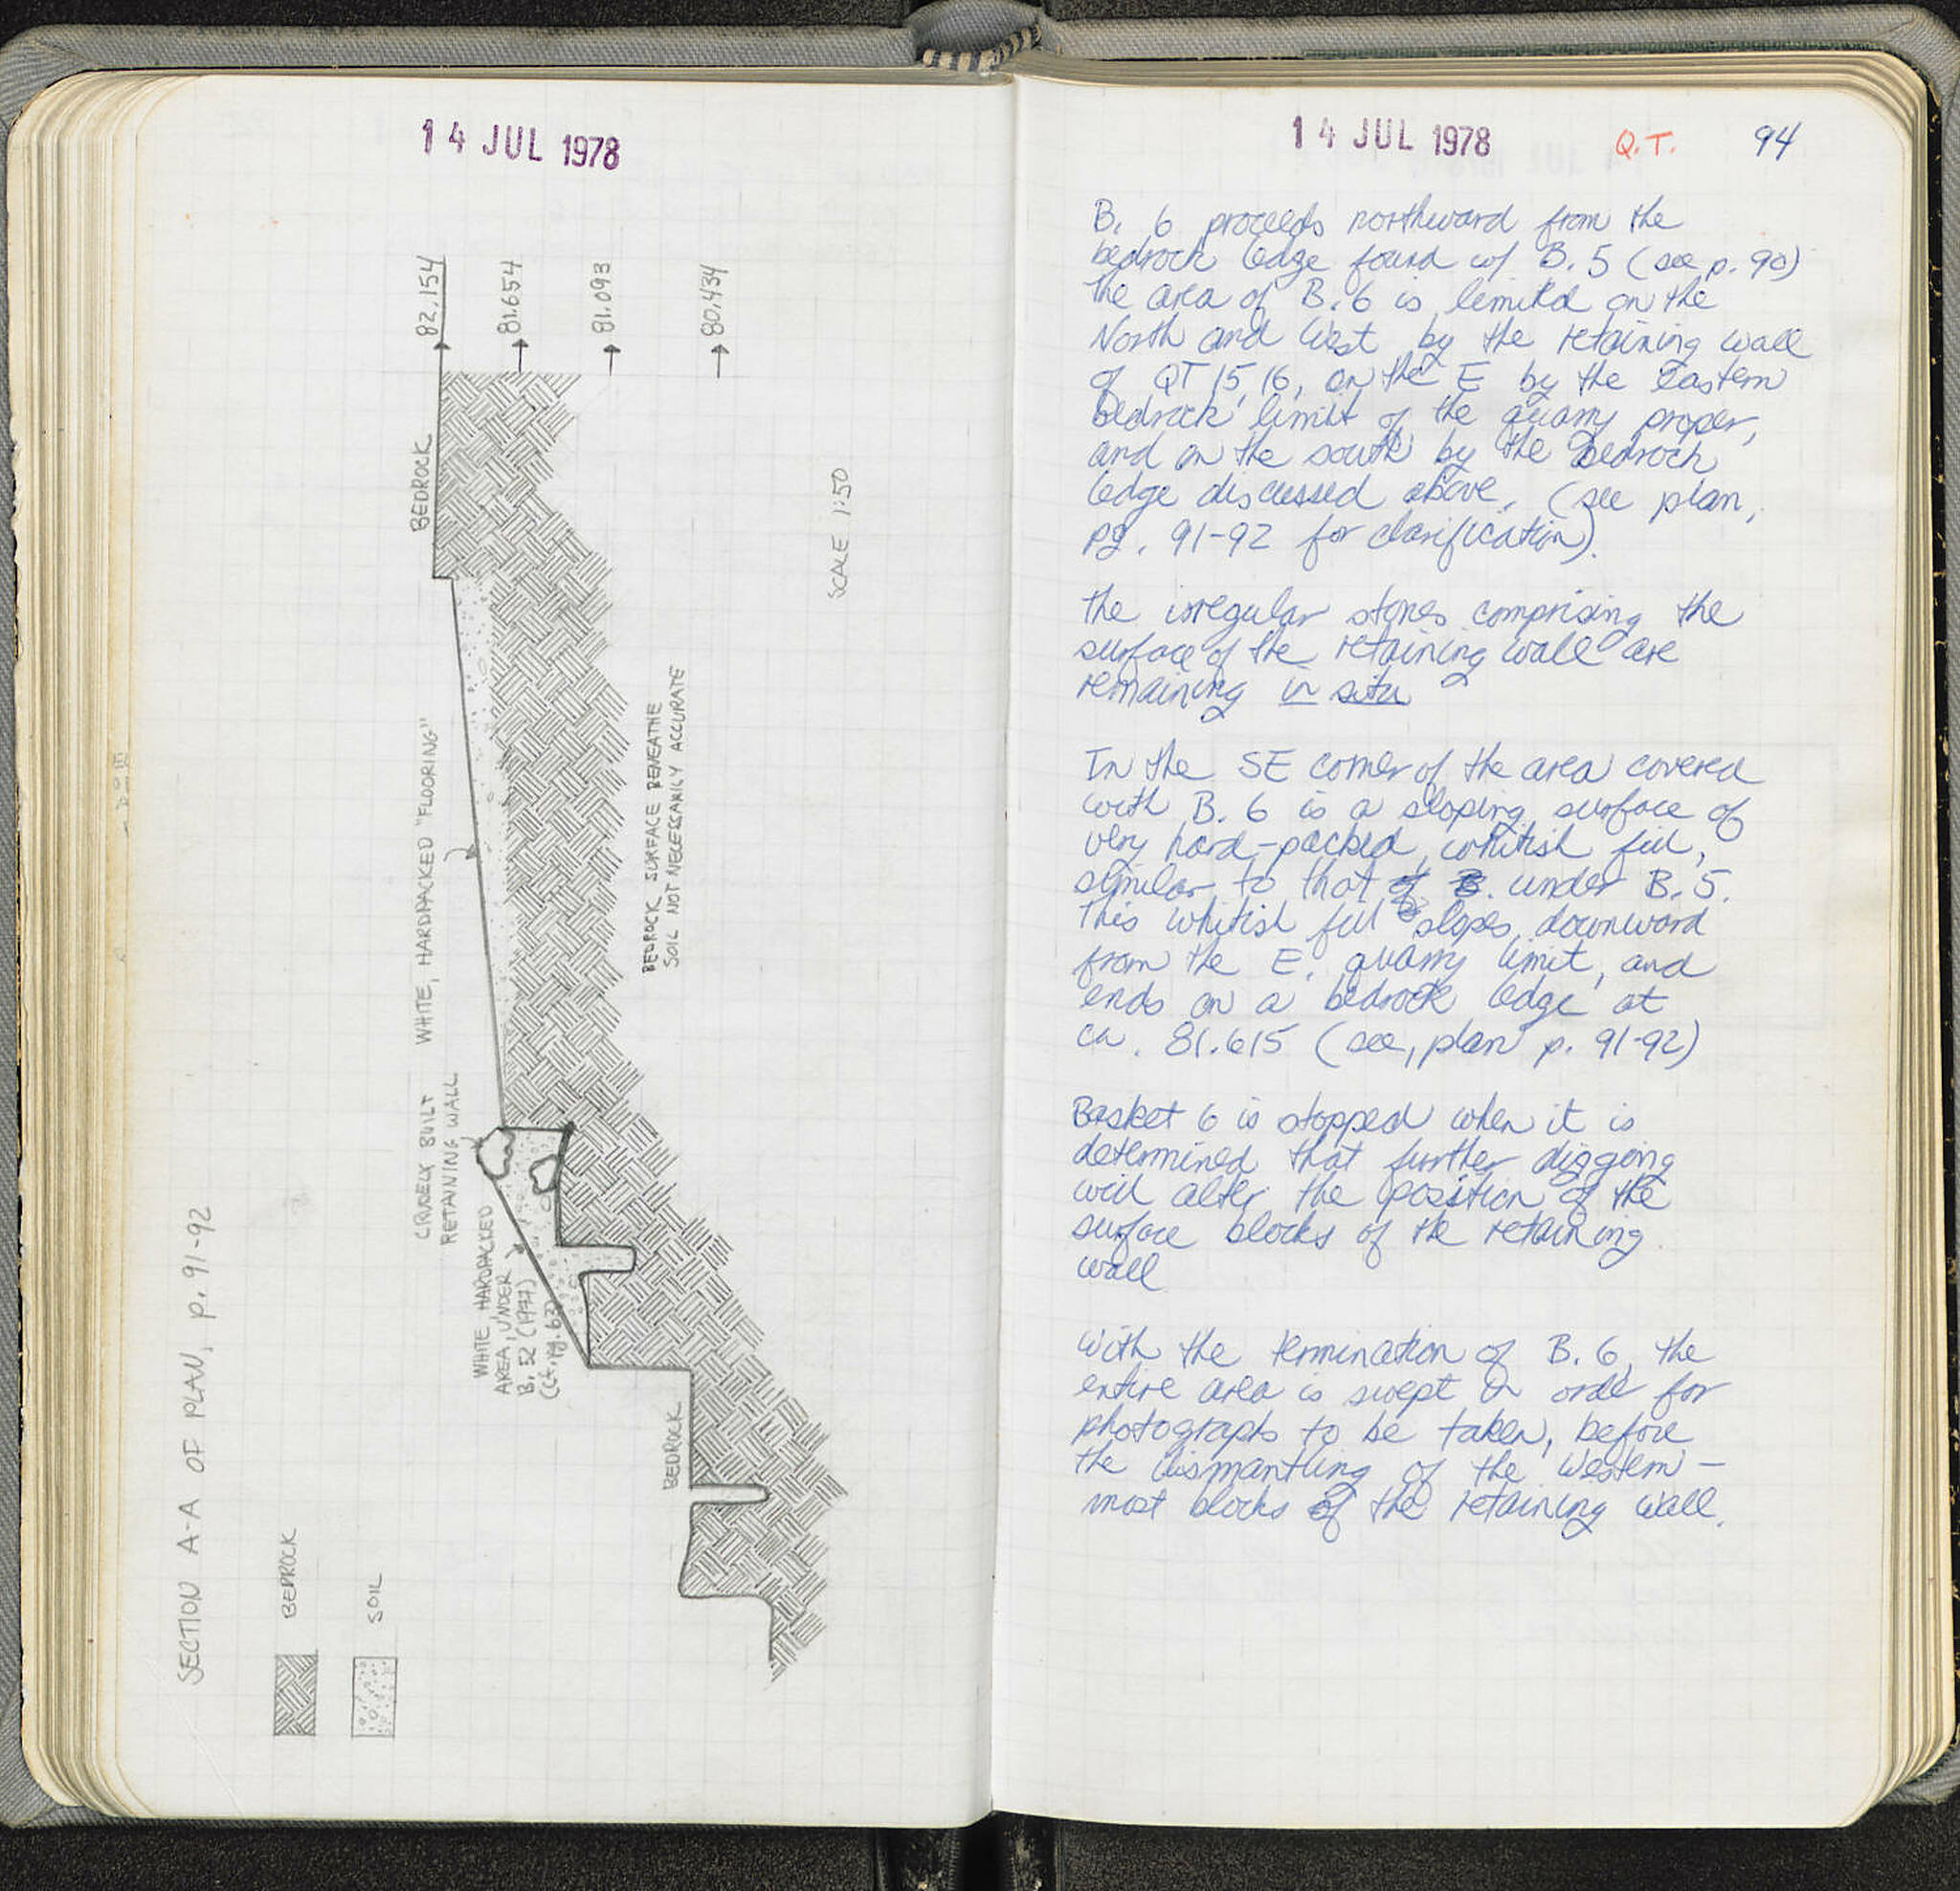 14 JUL 1978
SECTION A-A OF PLAN, p. 91-92
BEDROCK
SOIL
82.154
81.654
81.093
80.434
BEDROCK
WHITE, HARDPACKED "FLOORING"
CRUDELY BUILT
RETAINING WALL
WHITE HARDPACKED
AREA, UNDER
B. 52 (1977)
(cf. pg. 63)
BEDROCK
BEDROCK SURFACE BENEATHE
SOIL NOT NECESSARILY ACCURATE
SCALE 1:50
14 JUL 1978 Q.T. 94
B. 6 proceeds northward from the
bedrock ledge found w/ B. 5 (see p. 90)
The area of B. 6 is limited on the
North and West by the retaining wall
of QT 15, 16, on the E by the Eastern
bedrock limit of the quarry proper,
and on the south by the Bedrock
ledge discussed above. (see plan,
pg. 91-92 for clarification).
The irregular stones comprising the
surface of the retaining wall are
remaining in situ
In the SE corner of the area covered
with B. 6 is a sloping surface of
very hard-packed, whitish fill,
similar to that of B. under B. 5.
This whitish fill slopes downward
from the E. quarry limit, and
ends on a bedrock ledge at
ca. 81.615 (see, plan p. 91-92)
Basket 6 is stopped when it is
determined that further digging
will alter the position of the
surface blocks of the retaining
wall
With the termination of B. 6, the
entire area is swept in order for
photographs to be taken, before
the dismantling of the Western-
most blocks of the retaining wall.